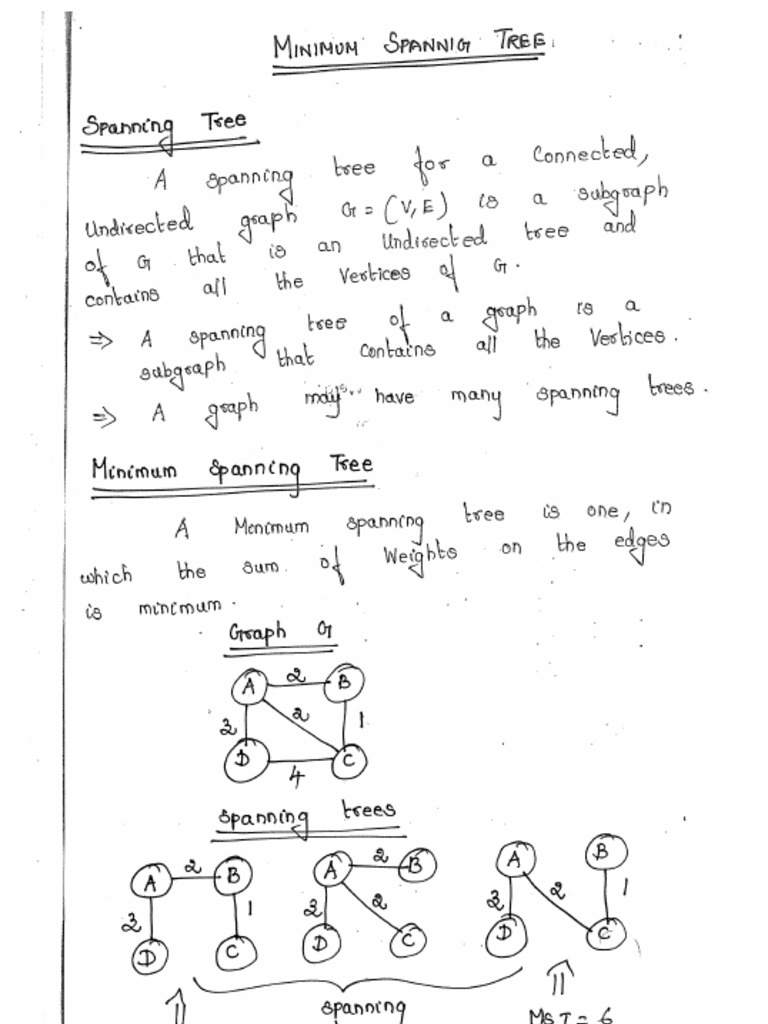 MINIMUM SPANNIG TREE
Spanning Tree
A spanning tree for a Connected,
Undirected graph G = (V, E) is a subgraph
of G that is an Undirected tree and
contains all the Vertices of G.
⇒ A spanning tree of a graph is a
subgraph that contains all the Vertices.
⇒ A graph may have many spanning trees.
Minimum Spanning Tree
A Minimum spanning tree is one, in
which the sum of Weights on the edges
is minimum.
Graph G
A 2 B
3 2 1
D 4 C
spanning trees
A 2 B A 2 B A B
3 1 3 2 3 2 1
D C D C D C
spanning
MST = 6